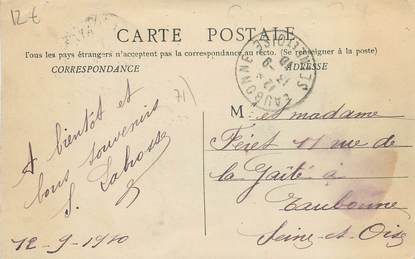 12€
CARTE POSTALE
Tous les pays étrangers n'acceptent pas la correspondance au recto. (Se renseigner à la poste)
CORRESPONDANCE
ADRESSE
EAUBONNE
SEINE-ET-OISE
71)
A bientôt et
bons souvenirs
S.
12-9-1910
M et madame
Féret 11 rue de
la Gaîté à
Eaubonne
Seine-et-Oise